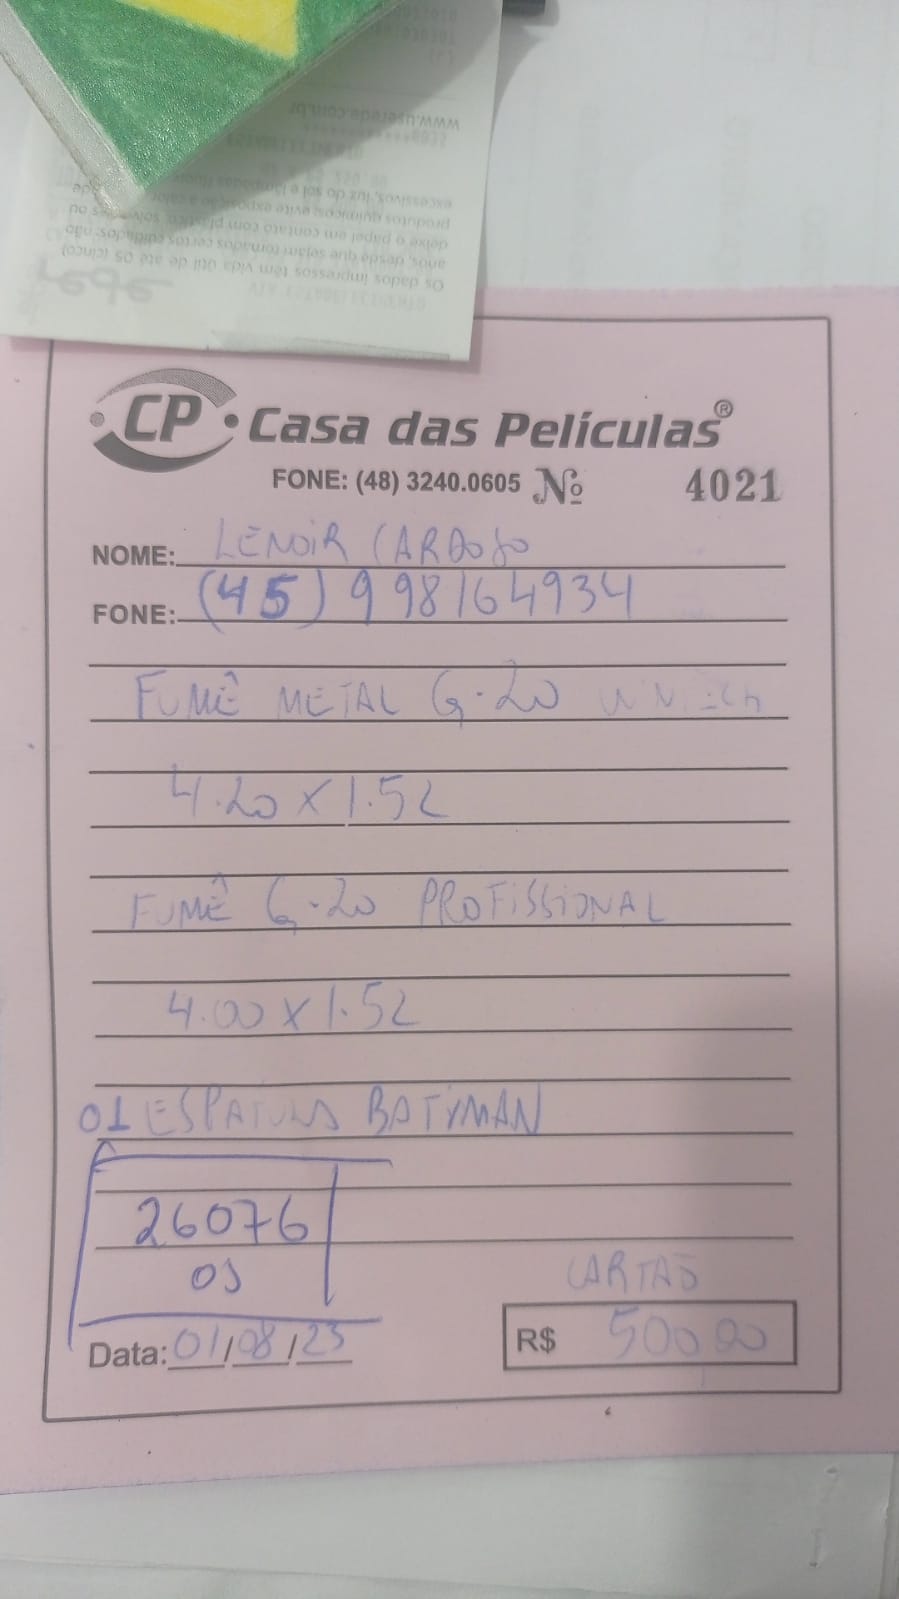 www.userede.com.br
excessivos, luz do sol e lâmpadas
produtos químicos, evite exposição a calor
deixe o papel em contato com plástico, solventes ou
anos, desde que sejam tomados certos cuidados: não
Os dados impressos têm vida útil de até os (cinco)
rede
VIA ESTABELECIMENTO
CP Casa das Películas®
FONE: (48) 3240.0605 Nº 4021
NOME: LENOIR CARDOSO
FONE: (45) 998164934
FUMÊ METAL G-20
4.20 X 1.52
FUMÊ G-20 PROFISSIONAL
4.00 X 1.52
01 ESPATULA BATMAN
26076
OS
CARTAO
Data: 01/08/23
R$ 500 00